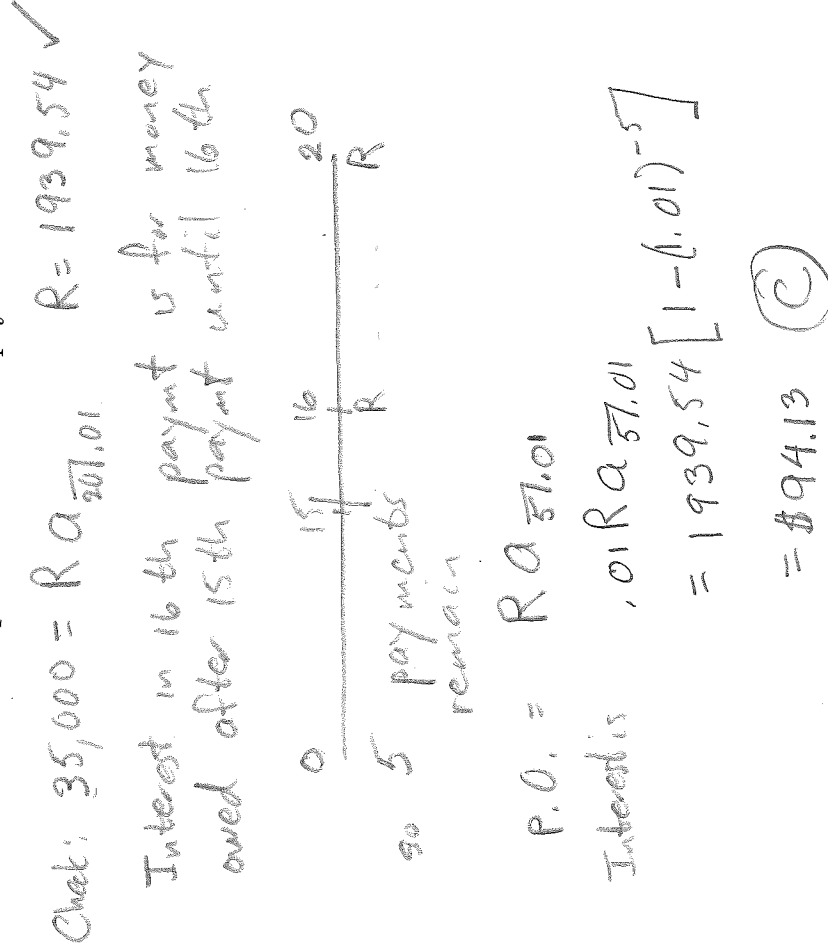 Check: 35,000 = R a 20|.01 R = 1939.54 ✓
Interest in 16th paymt is for money
owed after 15th paymt until 16th
0 15 16 20
R .... R
so 5 payments
remain
P.O. = R a 5|.01
Interest is .01 R a 5|.01
= 1939.54 [1-(1.01)^-5]
= $94.13 (C)